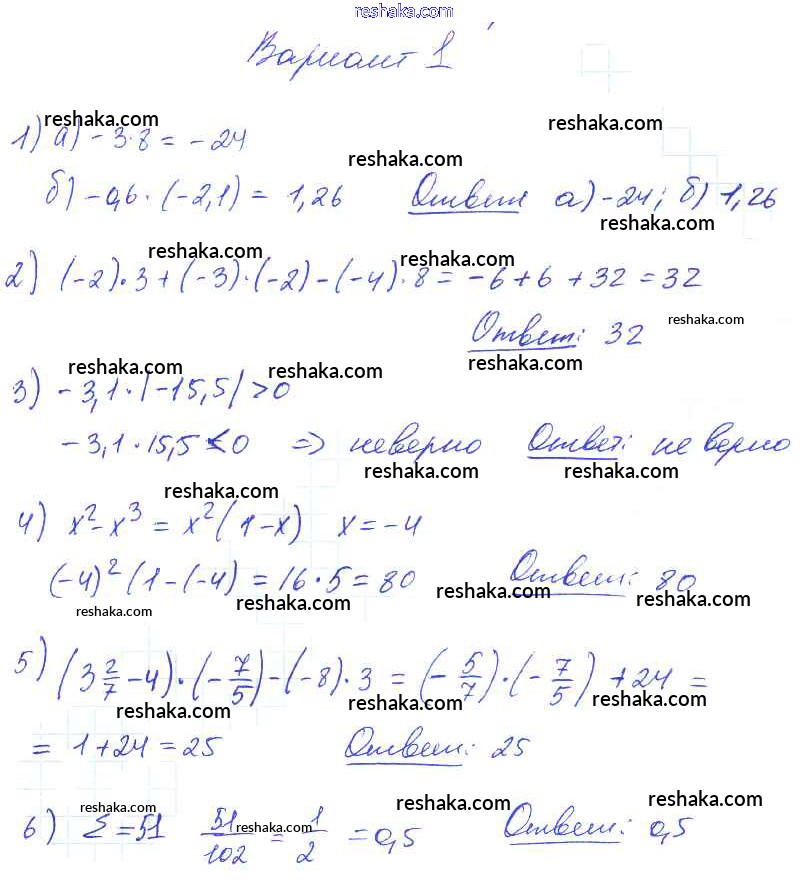 reshaka.com
Вариант 1
reshaka.com
reshaka.com
1) а) -3·8 = -24
reshaka.com
б) -0,6 · (-2,1) = 1,26 Ответ а) -24; б) 1,26
reshaka.com
reshaka.com
reshaka.com
2) (-2)·3 + (-3)·(-2) - (-4)·8 = -6+6 +32 = 32
Ответ: 32
reshaka.com
reshaka.com
reshaka.com
reshaka.com
3) -3,1·|-15,5| > 0
-3,1·15,5 < 0 => неверно Ответ: неверно
reshaka.com
reshaka.com
reshaka.com
4) x² - x³ = x²(1-x) x = -4
(-4)²(1-(-4) = 16·5 = 80 Ответ: 80
reshaka.com
reshaka.com
reshaka.com
reshaka.com
5) (3 2/7 - 4)·(- 7/5) - (-8)·3 = (- 5/7)·(- 7/5) + 24 =
reshaka.com
reshaka.com
reshaka.com
= 1+24 = 25 Ответ: 25
reshaka.com
reshaka.com
reshaka.com
6) Σ = 51 51/102 = 1/2 = 0,5 Ответ: 0,5
reshaka.com